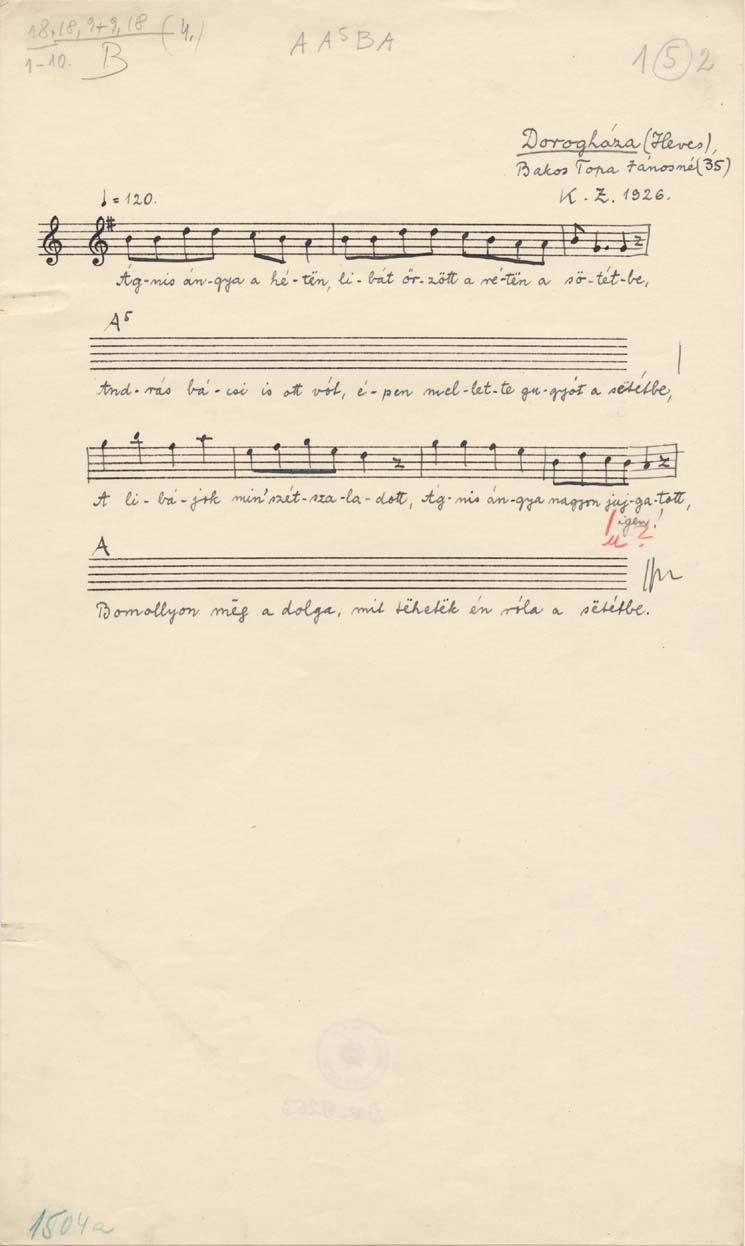 18, 18, 9+9, 18 (4.)
1-10. B
A A⁵ B A
1 5 2
Dorogháza (Heves),
Bakos Topa Jánosné (35)
K. Z. 1926.
♩ = 120.
Ág-nis án-gya a hé-tën, li-bát őr-zött a ré-tën a sö-tét-be,
A⁵
And-rás bá-csi is ott vót, é-pen mel-let-te gu-gyót a sëtétbe,
A li-bá-jok min' szét-sza-la-dott, Ág-nis án-gya nagyon juj-ga-tott,
igen!
u ?
A
Bomollyon mëg a dolga, mit tëhetëk én róla a sëtétbe.
1504a